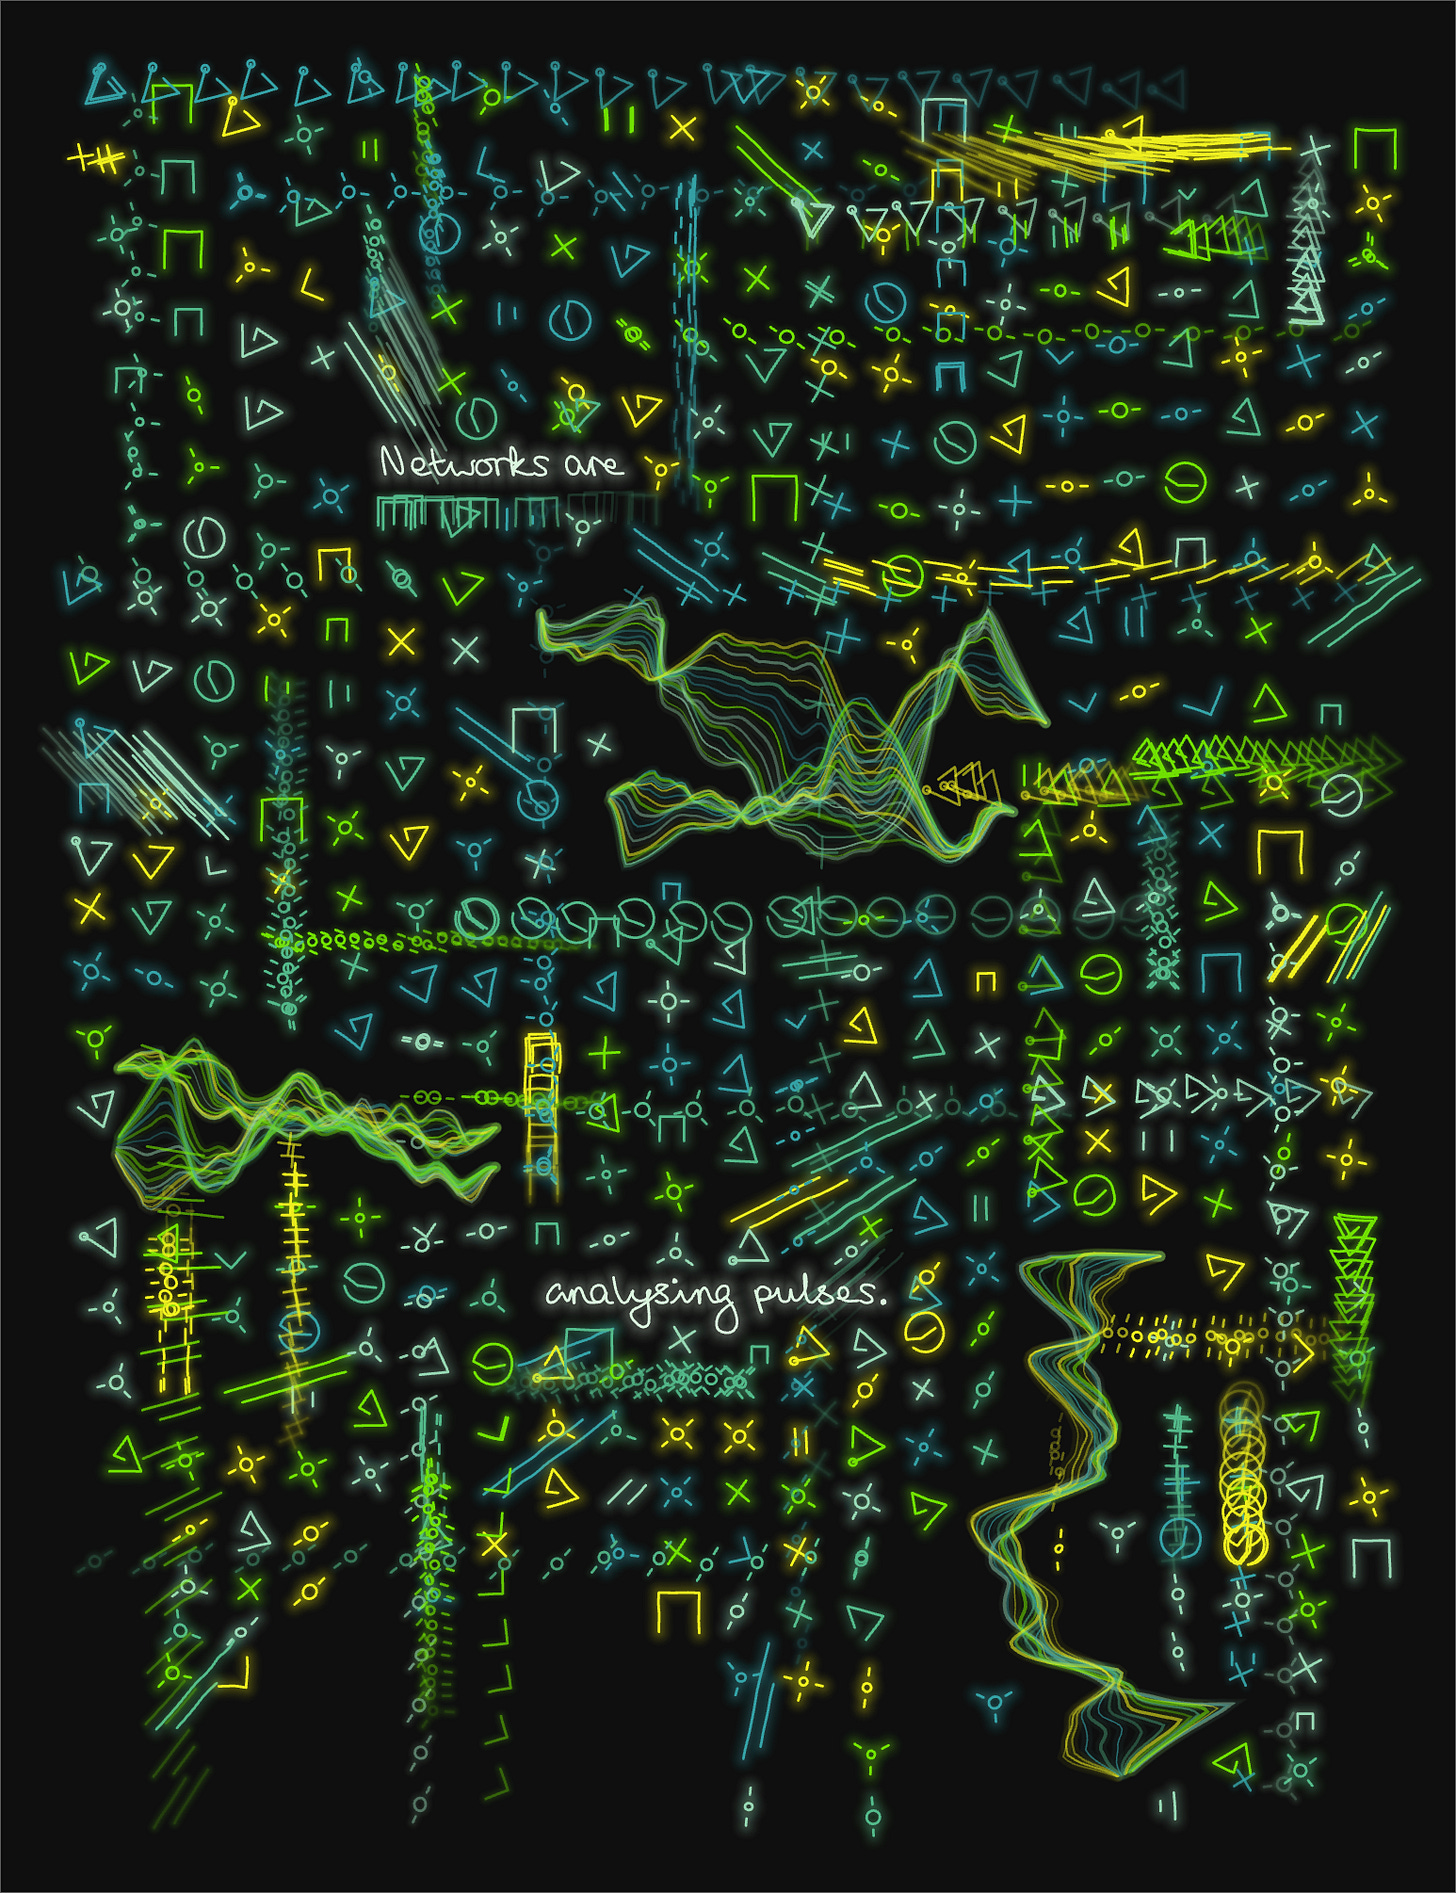 Networks are
analysing pulses.